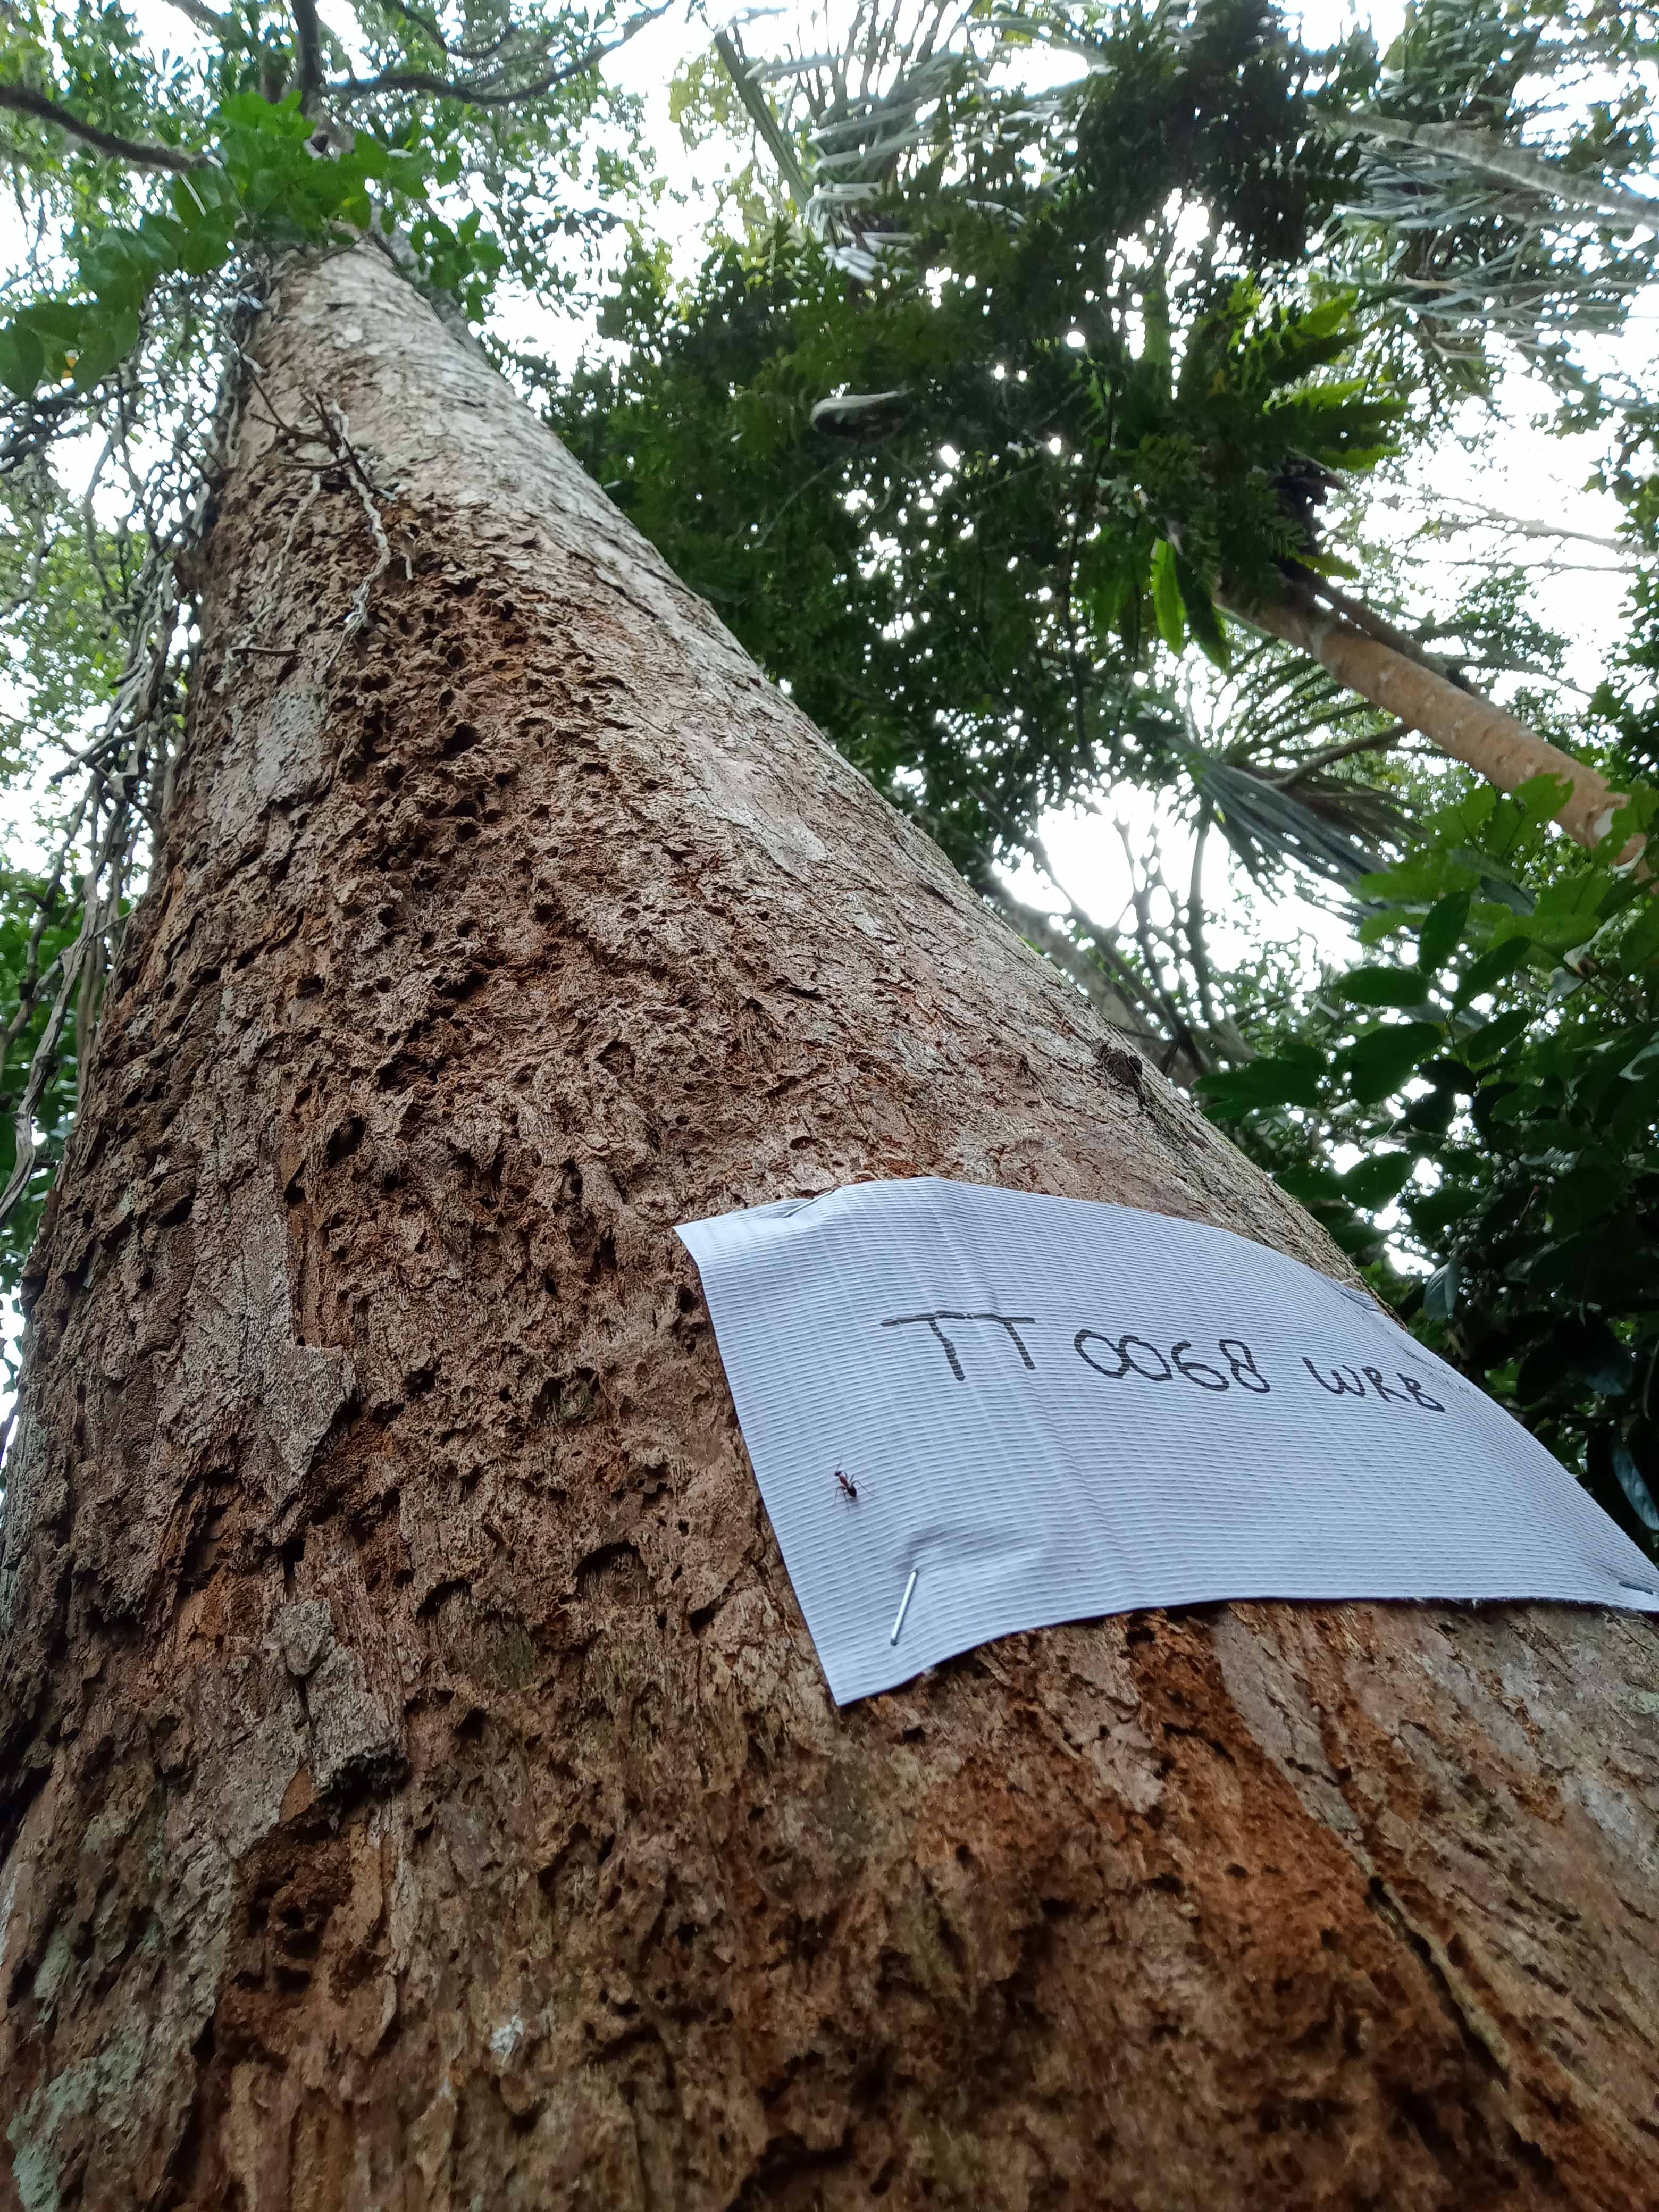 TT 0068 WRB